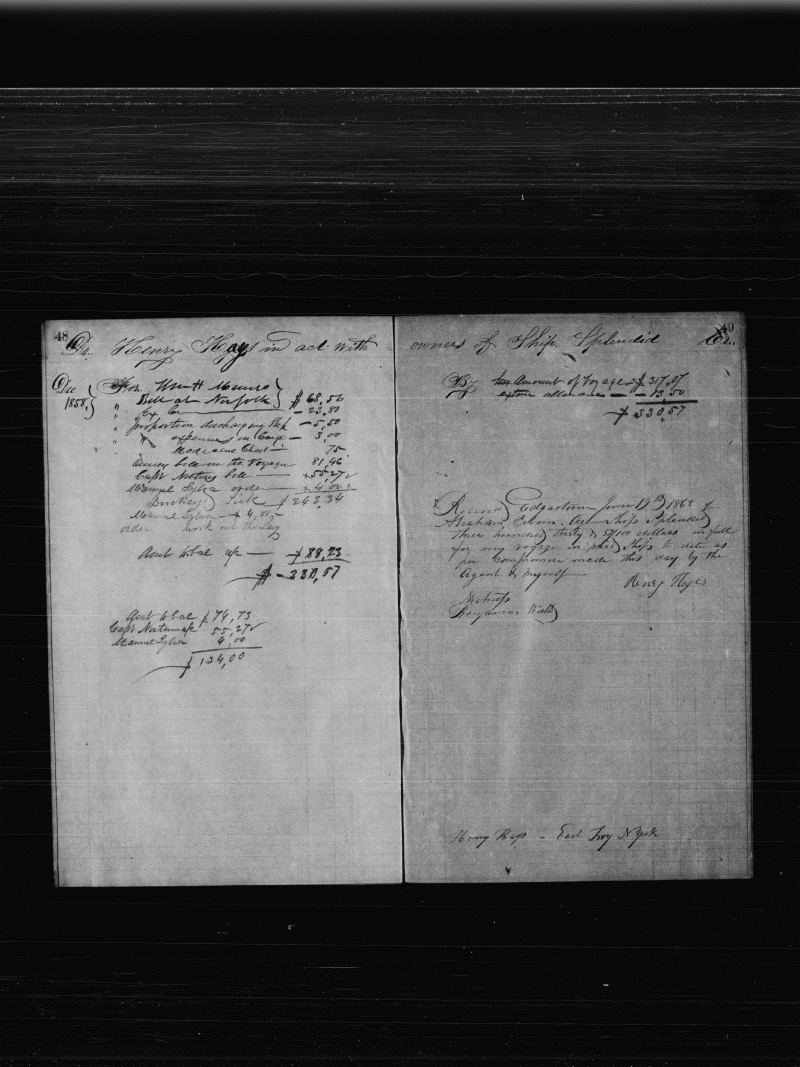 48
Dr. Henry Hays in act with
Dec 1858 } For Wm H Munro
Bill at Norfolk } $ 68,56
" — 23,80
" proportion discharging ship — 5,50
" expenses on Cargo — 3,00
Medicine Chest — 75
bill on the Voyage 81,46
Capt Nortons bill — 55,27
Manuel Sylva order — 4,00
Sick $ 242,34
Manuel Sylva — $ 4,00 —
order work out the Lay
— $ 88,23
$ — 330,57
$ 74,73
Capt Norton a/c 55,27
Manuel Sylva 4,00
$ 134,00
49
owners of Ship Splendid Cr.
By Amount of Voyage — $ 317,07
extra allowance — 13 50
$ 330,57
Received Edgartown June 19th 1862 of
Abraham Osborn Agt Ship Splendid
three hundred thirty & 57/100 dollars in full
for my voyage in said Ship to date as
per compromise made this day by the
Agent & myself — Henry Hays
Witness
Benjamin
Henry Hays - East Troy N York